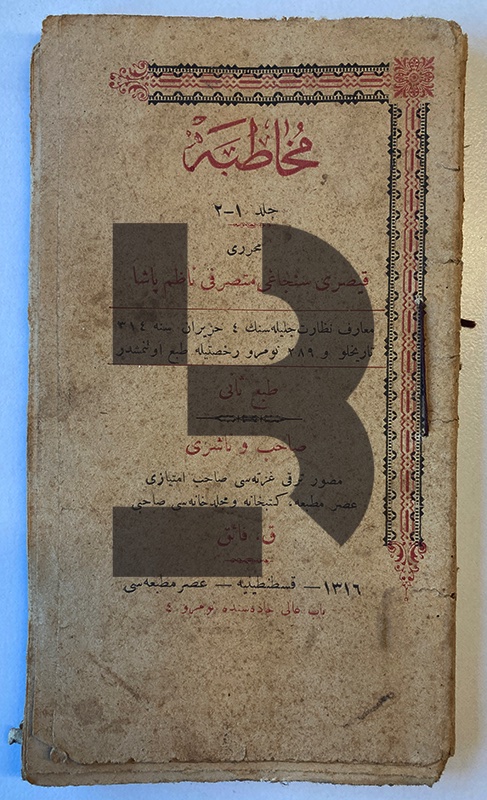 مخاطبه
جلد ١-٢
محرری
قیصری سنجاغی متصرفی ناظم پاشا
معارف نظارت جلیله‌سنك ٤ حزیران سنه ٣١٤
تاریخلو و ٢٨٩ نومرو رخصتیله طبع اولنمشدر
طبع ثانی
صاحب و ناشری
مصور ترقی غزته‌سی صاحب امتیازی
عصر مطبعه، کتبخانه و مجلدخانه‌سی صاحبی
ق . فائق
١٣١٦ — قسطنطینیه — عصر مطبعه‌سی
باب عالی جاده‌سنده نومرو ٤